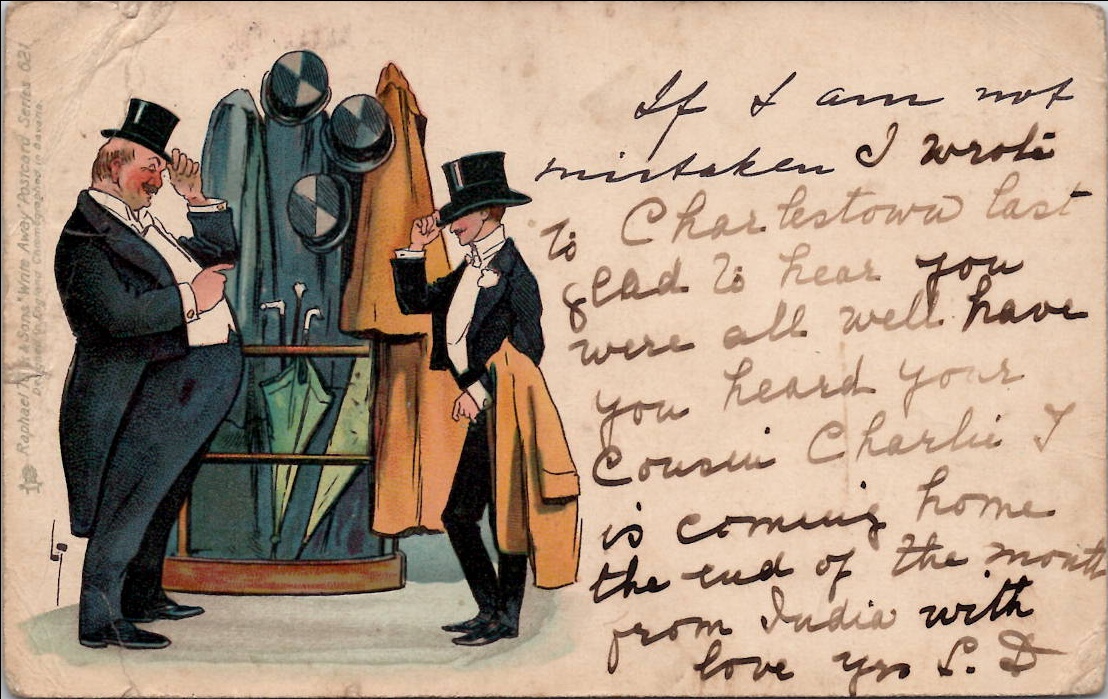 If I am not
mistaken I wrote
to Charlestown last
glad to hear you
were all well have
you heard your
Cousin Charlie I
is coming home
the end of the month
from India with
love yrs L. D
Raphael & Sons "Write Away" Postcard Series 621
Designed in England Chromographed in Bavaria